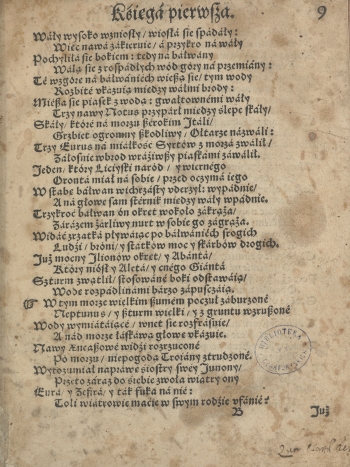 Księgá pierwsza. 9
Wáły wysoko wzniosły / wiosłá sie spadáły:
Więc nawá zákiernie / á przykro ná wáły
Pochyliłá sie bokiem: tedy ná báłwány
Wálą sie z rospádłych wód góry ná przemiány:
Té wzgóre ná báłwániéch wieszą sie / tym wody
Rozbité vkázuią miedzy wałmi brody:
Miesza sie piasek z wodą: gwałtownémi wały
Trzy nawy Notus przypárł miedzy ślepé skáły /
Skáły / któré ná morzu szérokim Itáli /
Grzbiet ogromny szkodliwy / Ołtarze názwáli:
Trzy Eurus ná miáłkość Syrtów z morzá zwálił /
Żáłosnie wbrod wráziwszy piaskámi záwálił.
Jeden / który Licyiski naród / y wiérnégo
Orontá miał ná sobie / przed oczymá iego
W sztabę báłwan wichrzásty vderzył: wypádnie /
A ná głowę sam stérnik miedzy wáły wpádnie.
Trzykroć báłwan ón okręt wokoło zákrąża /
Zárázem żárliwy nurt w sobie go zágrąża.
Widáć rzatká pływáiąc po báłwániéch srogich
Ludzi / bróni / y státków moc y skárbów drogich.
Już mocny Jlionów okręt / y Abántá /
Który niósł y Aletá / y cnégo Giántá
Szturm zwątlił / stosowáné boki odstáwáią /
Wodę rozpádlinámi bárzo zápuszczáią.
☞ W tym morze wielkim szumém poczuł záburzoné
Neptunus / y szturm wielki / y z gruntu wzruszoné
Wody wymiátáiącé / wnet sie rozfrásuie /
A nád morze łáskáwą głowę vkázuie.
Nawy Aeneaszowé widzi rozrzucone
Po morzu / niepogodą Troiány strudzoné.
Wyrozumiał napráwę siostry swéy Junony /
Przeto záraz do siebie zwoła wiátry ony
Eurá / y Zefirá / y ták fuka ná nié:
Toli wiátrowie macie w swym rodzie vfánié?
B Już
BIBLIOTEKA